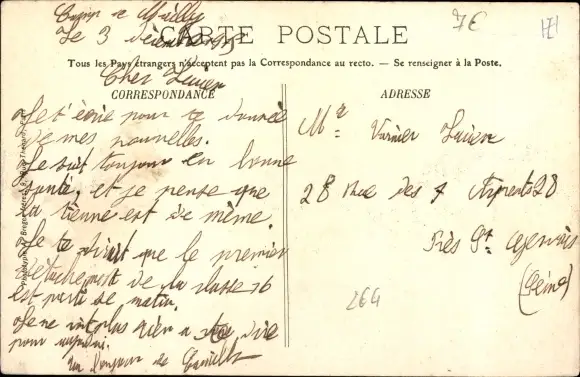 Camp de Mailly
Le 3 décembre 1915
CARTE POSTALE
7€
Tous les Pays étrangers n'acceptent pas la Correspondance au recto. — Se renseigner à la Poste.
Cher Lucien
CORRESPONDANCE
Je t'écrie pour te donner
de mes nouvelles.
Je suit toujour en bonne
santé, et je pense que
la tienne est de même.
Je te dirait que le premier
détachement de la classe 16
est parti ce matin.
Je ne voit plus rien a te dire
pour
un bonjour de Camille
ADRESSE
Mr Lucien
28 Rue des 7 Arpents 28
Près St Gervais
(Seine)
264